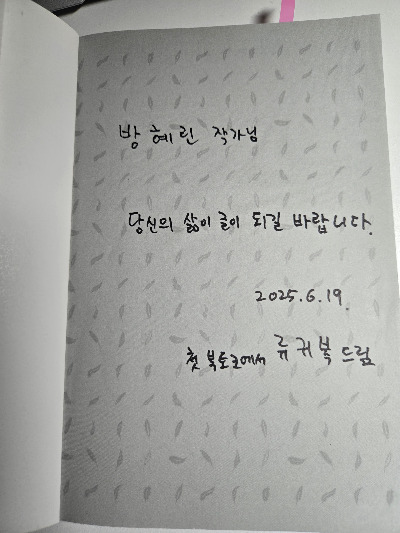 방혜린 작가님
당신의 삶이 글이 되길 바랍니다.
2025.6.19.
첫 북토크에서 류귀복 드림